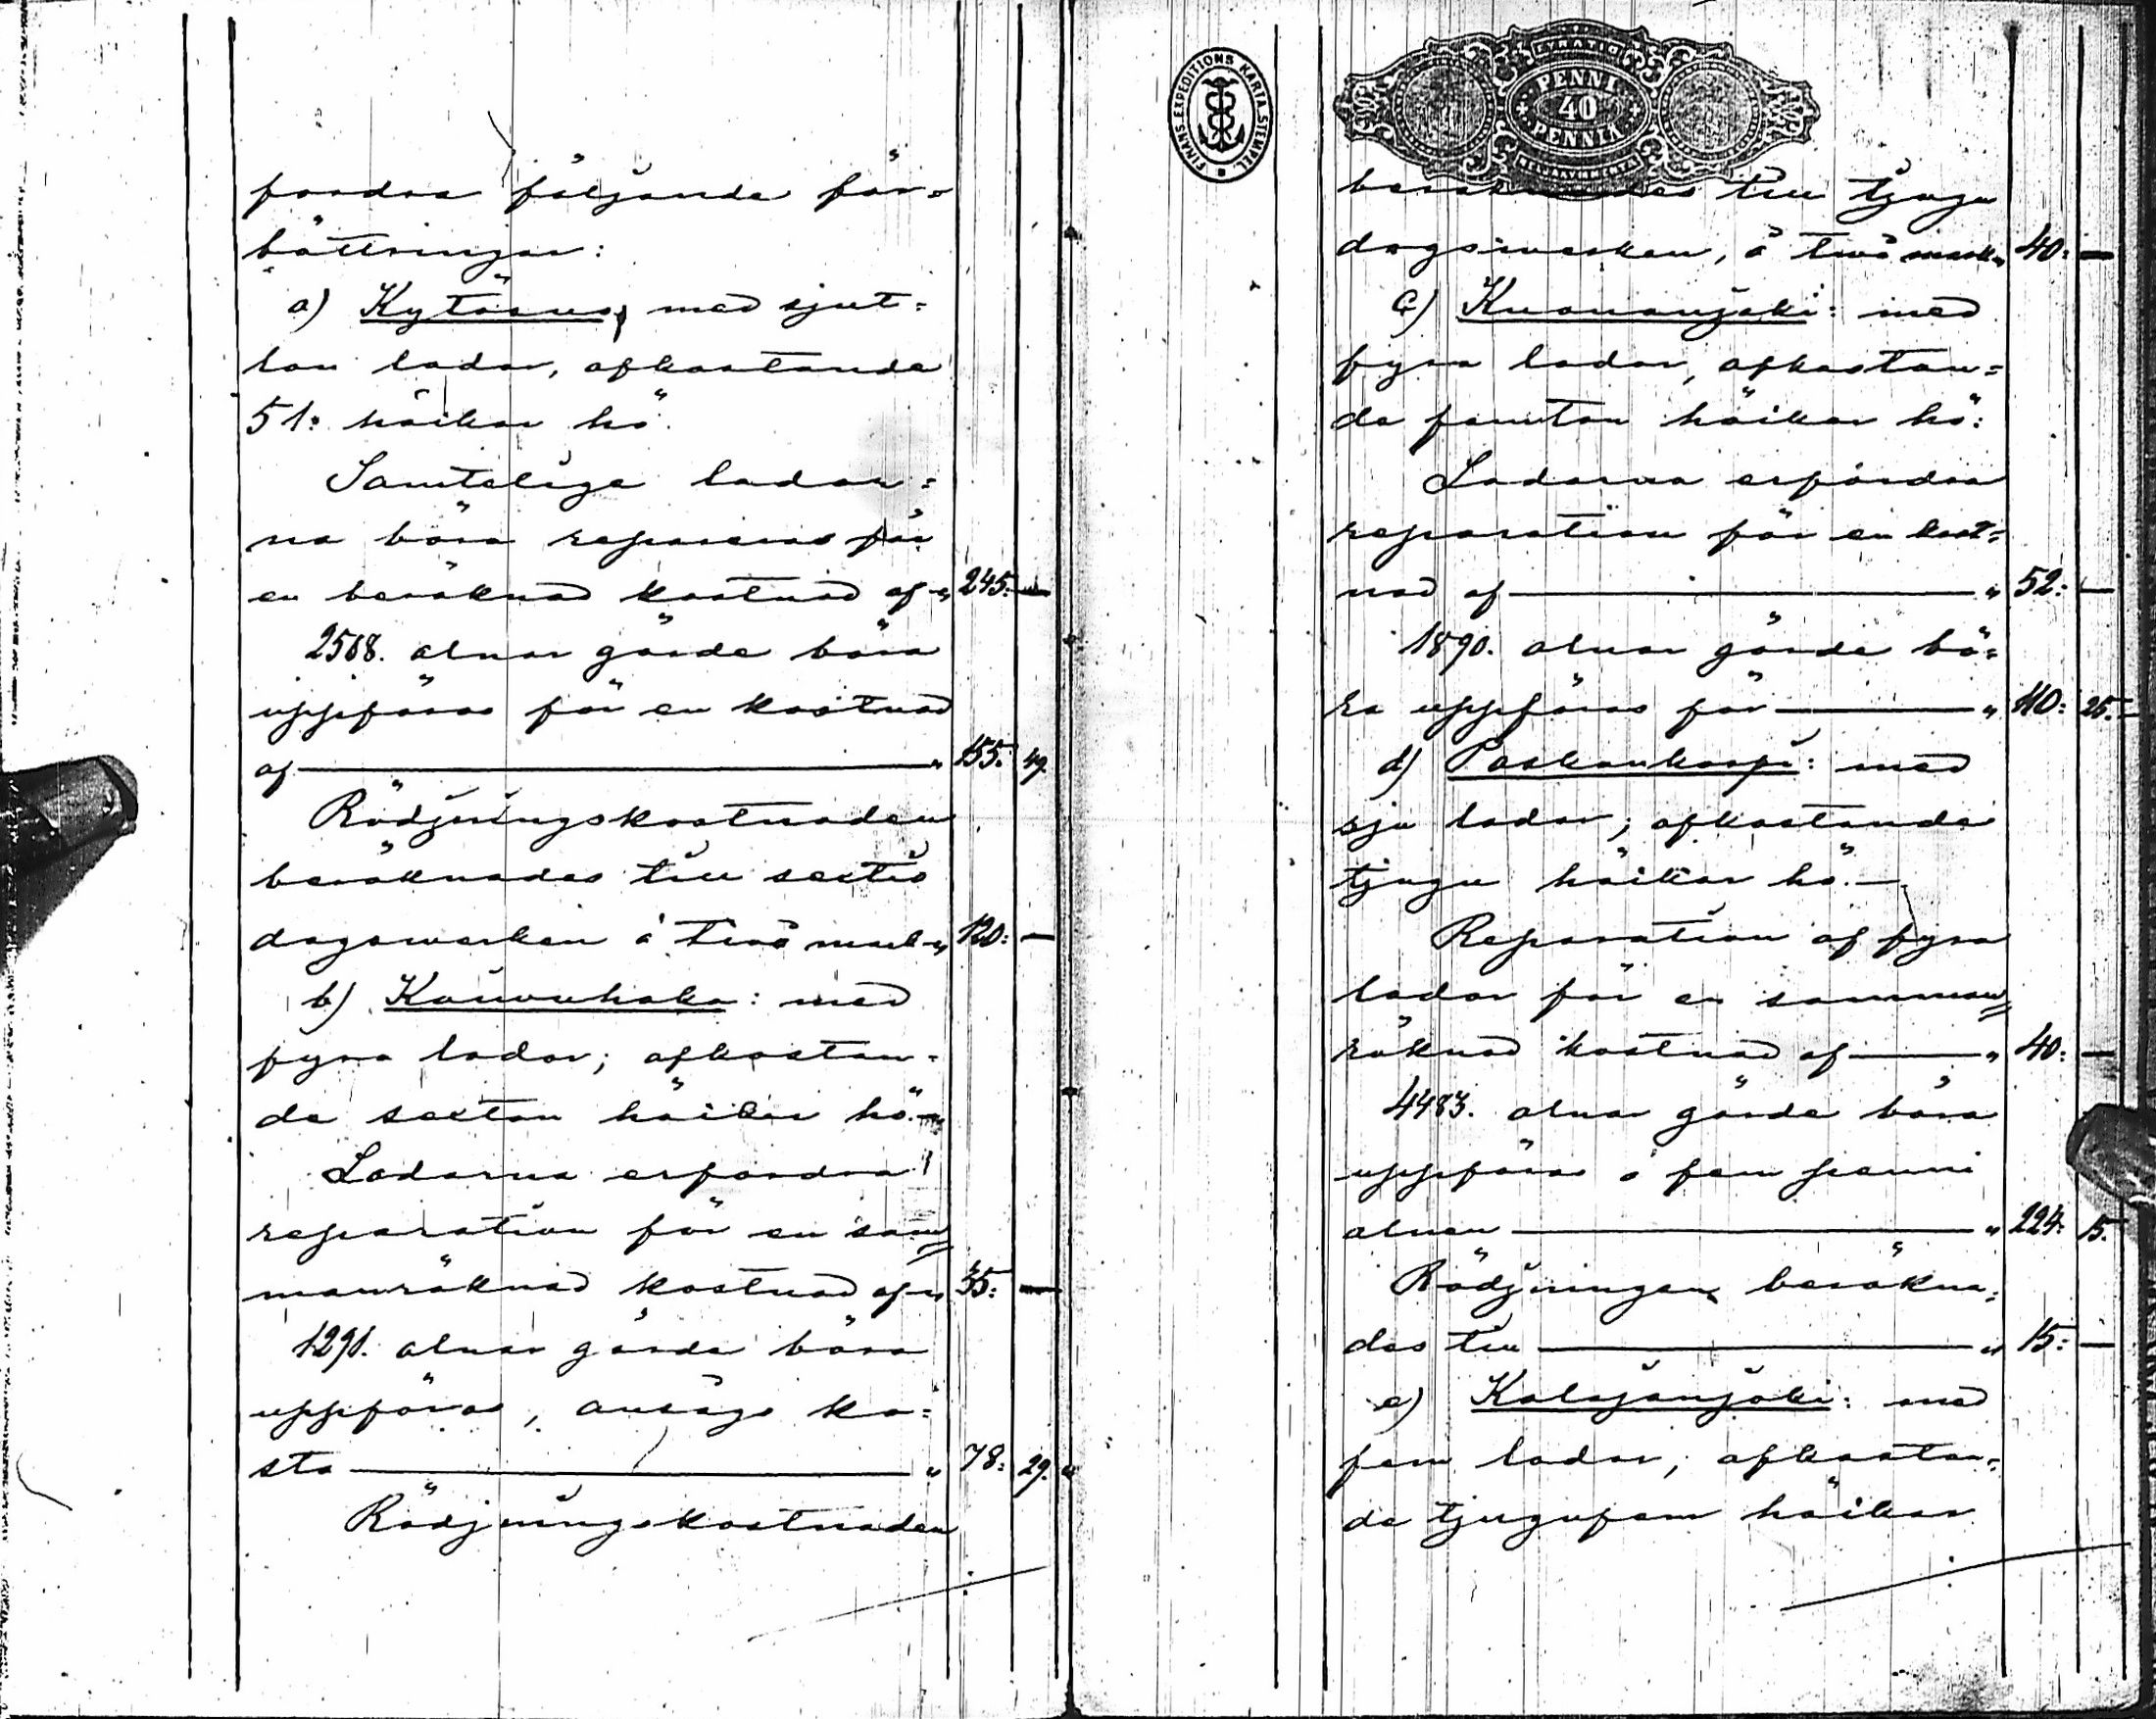 fordra följande för=
bättringar:
a) Kytösuo, med sjut=
ton lador, afkastande
51: häckar hö.
Samteliga lador=
na böra repareras för
en beräknad kostnad af " 245: —
2568. alnar gärde böra
uppföras för en kostnad
af — " 155: 49.
Rödjningskostnaden
beräknades till sextio
dagsverken á två mark " 120: —
b) : med
fyra lador; afkastan=
de sexton häckar hö. —
Ladorna erfordra
reparation för en sam=
manräknad kostnad af " 55: —
1291. alnar gärde böra
uppföras, ansågs ko=
sta — " 78: 29.
Rödjningskostnaden
FINANS EXPEDITIONS KARTA. STEMPEL.
PENNI
40
PENNIÄ
beräknades till tjugu
dagsverken, á två mark " 40: —
c) : med
fyra lador, afkastan=
de femton häckar hö:
Ladorna erfordra
reparation för en kost=
nad af — " 52: —
1890. alnar gärde bö=
ra uppföras för — " 110: 25.
d) Paskankorpi: med
sju lador; afkastande
tjugu häckar hö. —
Reparation af fyra
lador för en samman=
räknad kostnad af — " 40: —
4483. alnar gärde böra
uppföras á fem penni
alnen — " 224: 15.
Rödjningen beräkna=
des till — " 15: —
e) Kalajanjoki: med
fem lador, afkastan=
de tjugufem häckar